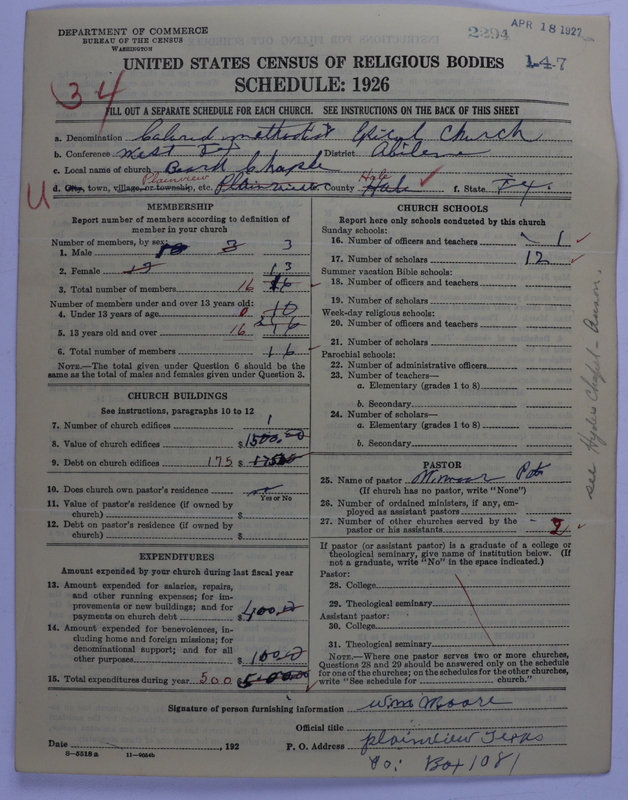 DEPARTMENT OF COMMERCE
BUREAU OF THE CENSUS
WASHINGTON
2294 APR 18 1927
1-4-7
UNITED STATES CENSUS OF RELIGIOUS BODIES
SCHEDULE: 1926
34
FILL OUT A SEPARATE SCHEDULE FOR EACH CHURCH. SEE INSTRUCTIONS ON THE BACK OF THIS SHEET
a. Denomination Colored Methodist Episcopal Church
b. Conference West Tex District Abilene
c. Local name of church Beard Chaple
Plainview Hale
U d. City, town, village, or township, etc. Plainview County Hale f. State Tex.
MEMBERSHIP
Report number of members according to definition of
member in your church
Number of members, by sex:
1. Male 3 3
2. Female 13 13
3. Total number of members 16 16
Number of members under and over 13 years old:
4. Under 13 years of age 0 10
5. 13 years old and over 16 16
6. Total number of members 16
NOTE.—The total given under Question 6 should be
same as the total of males and females given under Question 3.
CHURCH BUILDINGS
See instructions, paragraphs 10 to 12
7. Number of church edifices 1
8. Value of church edifices $1500.00
9. Debt on church edifices 175 $
10. Does church own pastor's residence no
Yes or No
11. Value of pastor's residence (if owned by
church) $
12. Debt on pastor's residence (if owned by
church) $
EXPENDITURES
Amount expended by your church during last fiscal year
13. Amount expended for salaries, repairs,
and other running expenses; for im-
provements or new buildings; and for
payments on church debt $400.00
14. Amount expended for benevolences, in-
cluding home and foreign missions; for
denominational support; and for all
other purposes $100.00
15. Total expenditures during year 500 $
CHURCH SCHOOLS
Report here only schools conducted by this church
Sunday schools:
16. Number of officers and teachers 1
17. Number of scholars 12
Summer vacation Bible schools:
18. Number of officers and teachers
19. Number of scholars
Week-day religious schools:
20. Number of officers and teachers
21. Number of scholars
Parochial schools:
22. Number of administrative officers
23. Number of teachers—
a. Elementary (grades 1 to 8)
b. Secondary
24. Number of scholars—
a. Elementary (grades 1 to 8)
b. Secondary
see Hyders Chapel - Anson.
PASTOR
25. Name of pastor
(If church has no pastor, write "None")
26. Number of ordained ministers, if any, em-
ployed as assistant pastors
27. Number of other churches served by the
pastor or his assistants 2
If pastor (or assistant pastor) is a graduate of a college or
theological seminary, give name of institution below. (If
not a graduate, write "No" in the space indicated.)
Pastor:
28. College
29. Theological seminary
Assistant pastor:
30. College
31. Theological seminary
NOTE.—Where one pastor serves two or more churches,
Questions 28 and 29 should be answered only on the schedule
for one of the churches; on the schedules for the other churches,
write "See schedule for church."
Signature of person furnishing information Wm Moore
Official title
Date , 192 P. O. Address Plainview Texas
8-5518a 11-9054b
Po: Box 1081